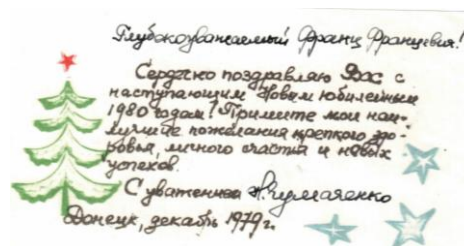 Глубокоуважаемый Франц Францевич!
Сердечно поздравляю Вас с
наступающим Новым юбилейным
1980 годом! Примите мои наи-
лучшие пожелания крепкого здо-
ровья, личного счастья и новых
успехов.
С уважением
Донецк, декабрь 1979 г.